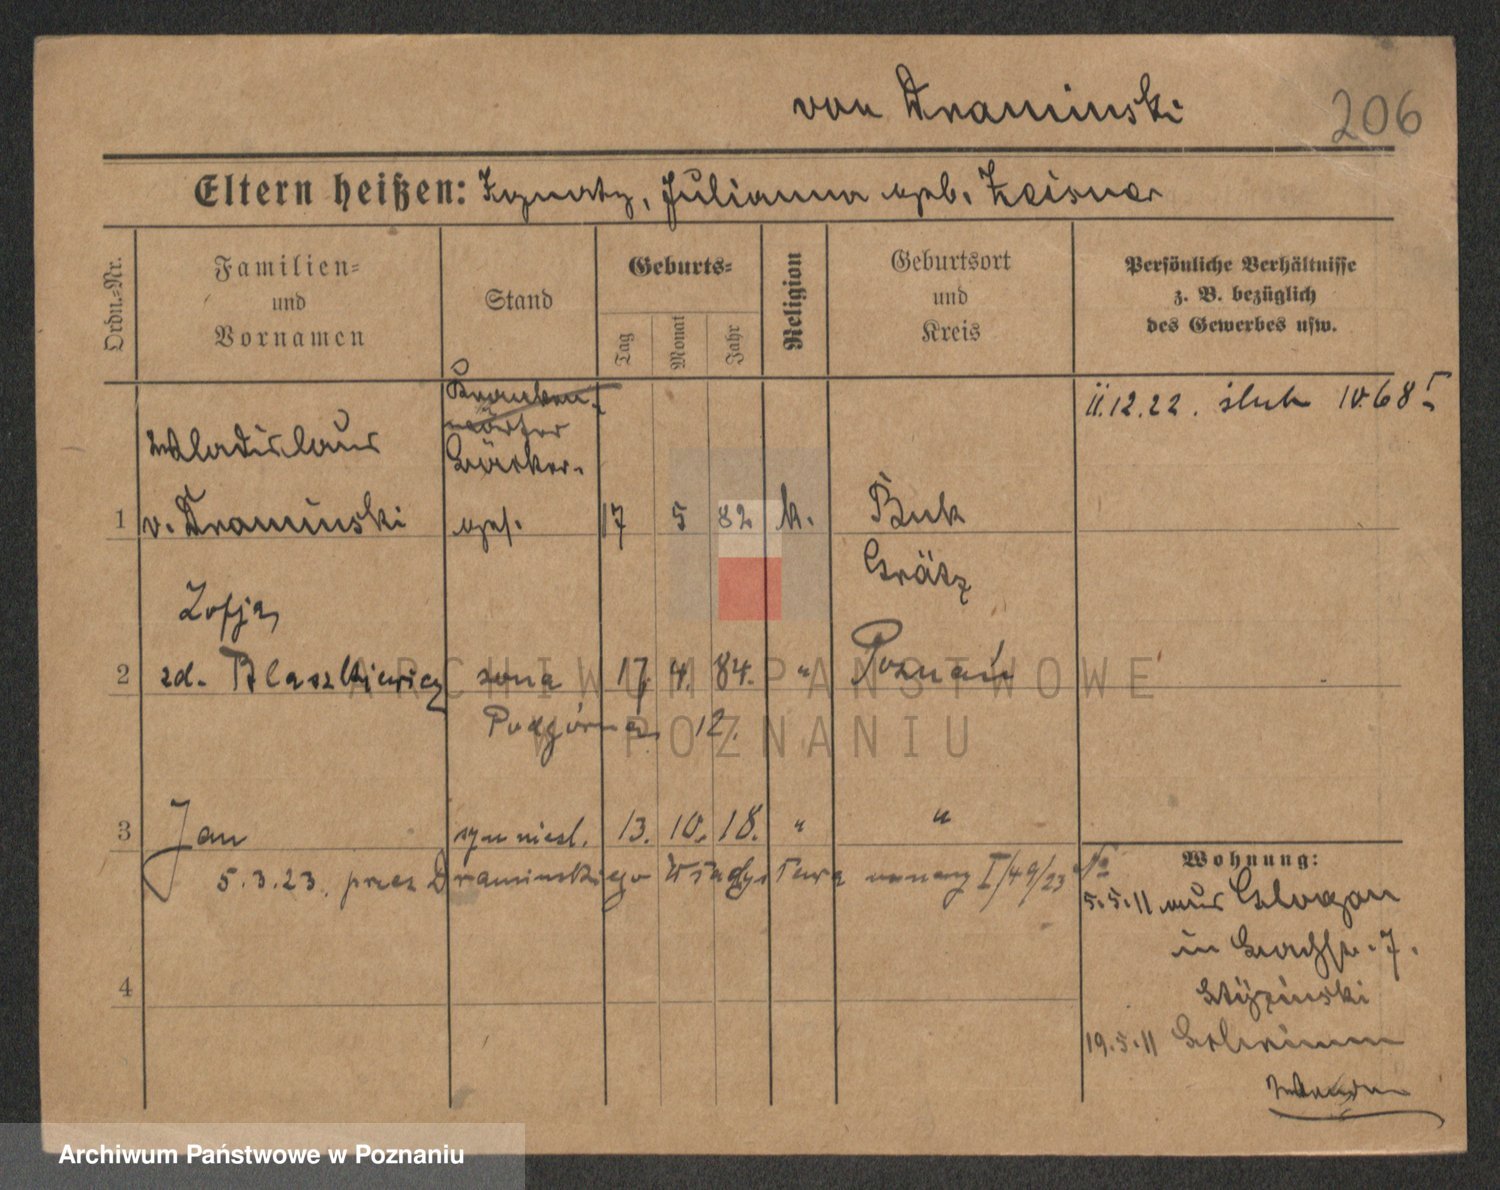 von Draminski 206
Eltern heißen: Ignatz, Julianna geb. Zeisner
Ordn.-Nr.
Familien-
und
Vornamen
Stand
Geburts-
Tag
Monat
Jahr
Religion
Geburtsort
und
Kreis
Persönliche Verhältnisse
z. B. bezüglich
des Gewerbes usw.
12.22. ślub
Kranken-
wärter
Wladislaus
Bäcker-
1 v. Draminski ges. 17 5 82 k. Buk
Grätz
Zofja
2 zd. Blaszkiewicz żona 17. 4. 84. " Poznań
Podgórna 12.
3 Jan syn nieśl. 13. 10. 18. " "
5.3.23. przez Draminskiego Władysława uznany I/49/23
4
Wohnung:
5.5.11 aus Glogau
in Bachstr. 7.
19.5.11
ARCHIWUM PAŃSTWOWE
W POZNANIU
Archiwum Państwowe w Poznaniu